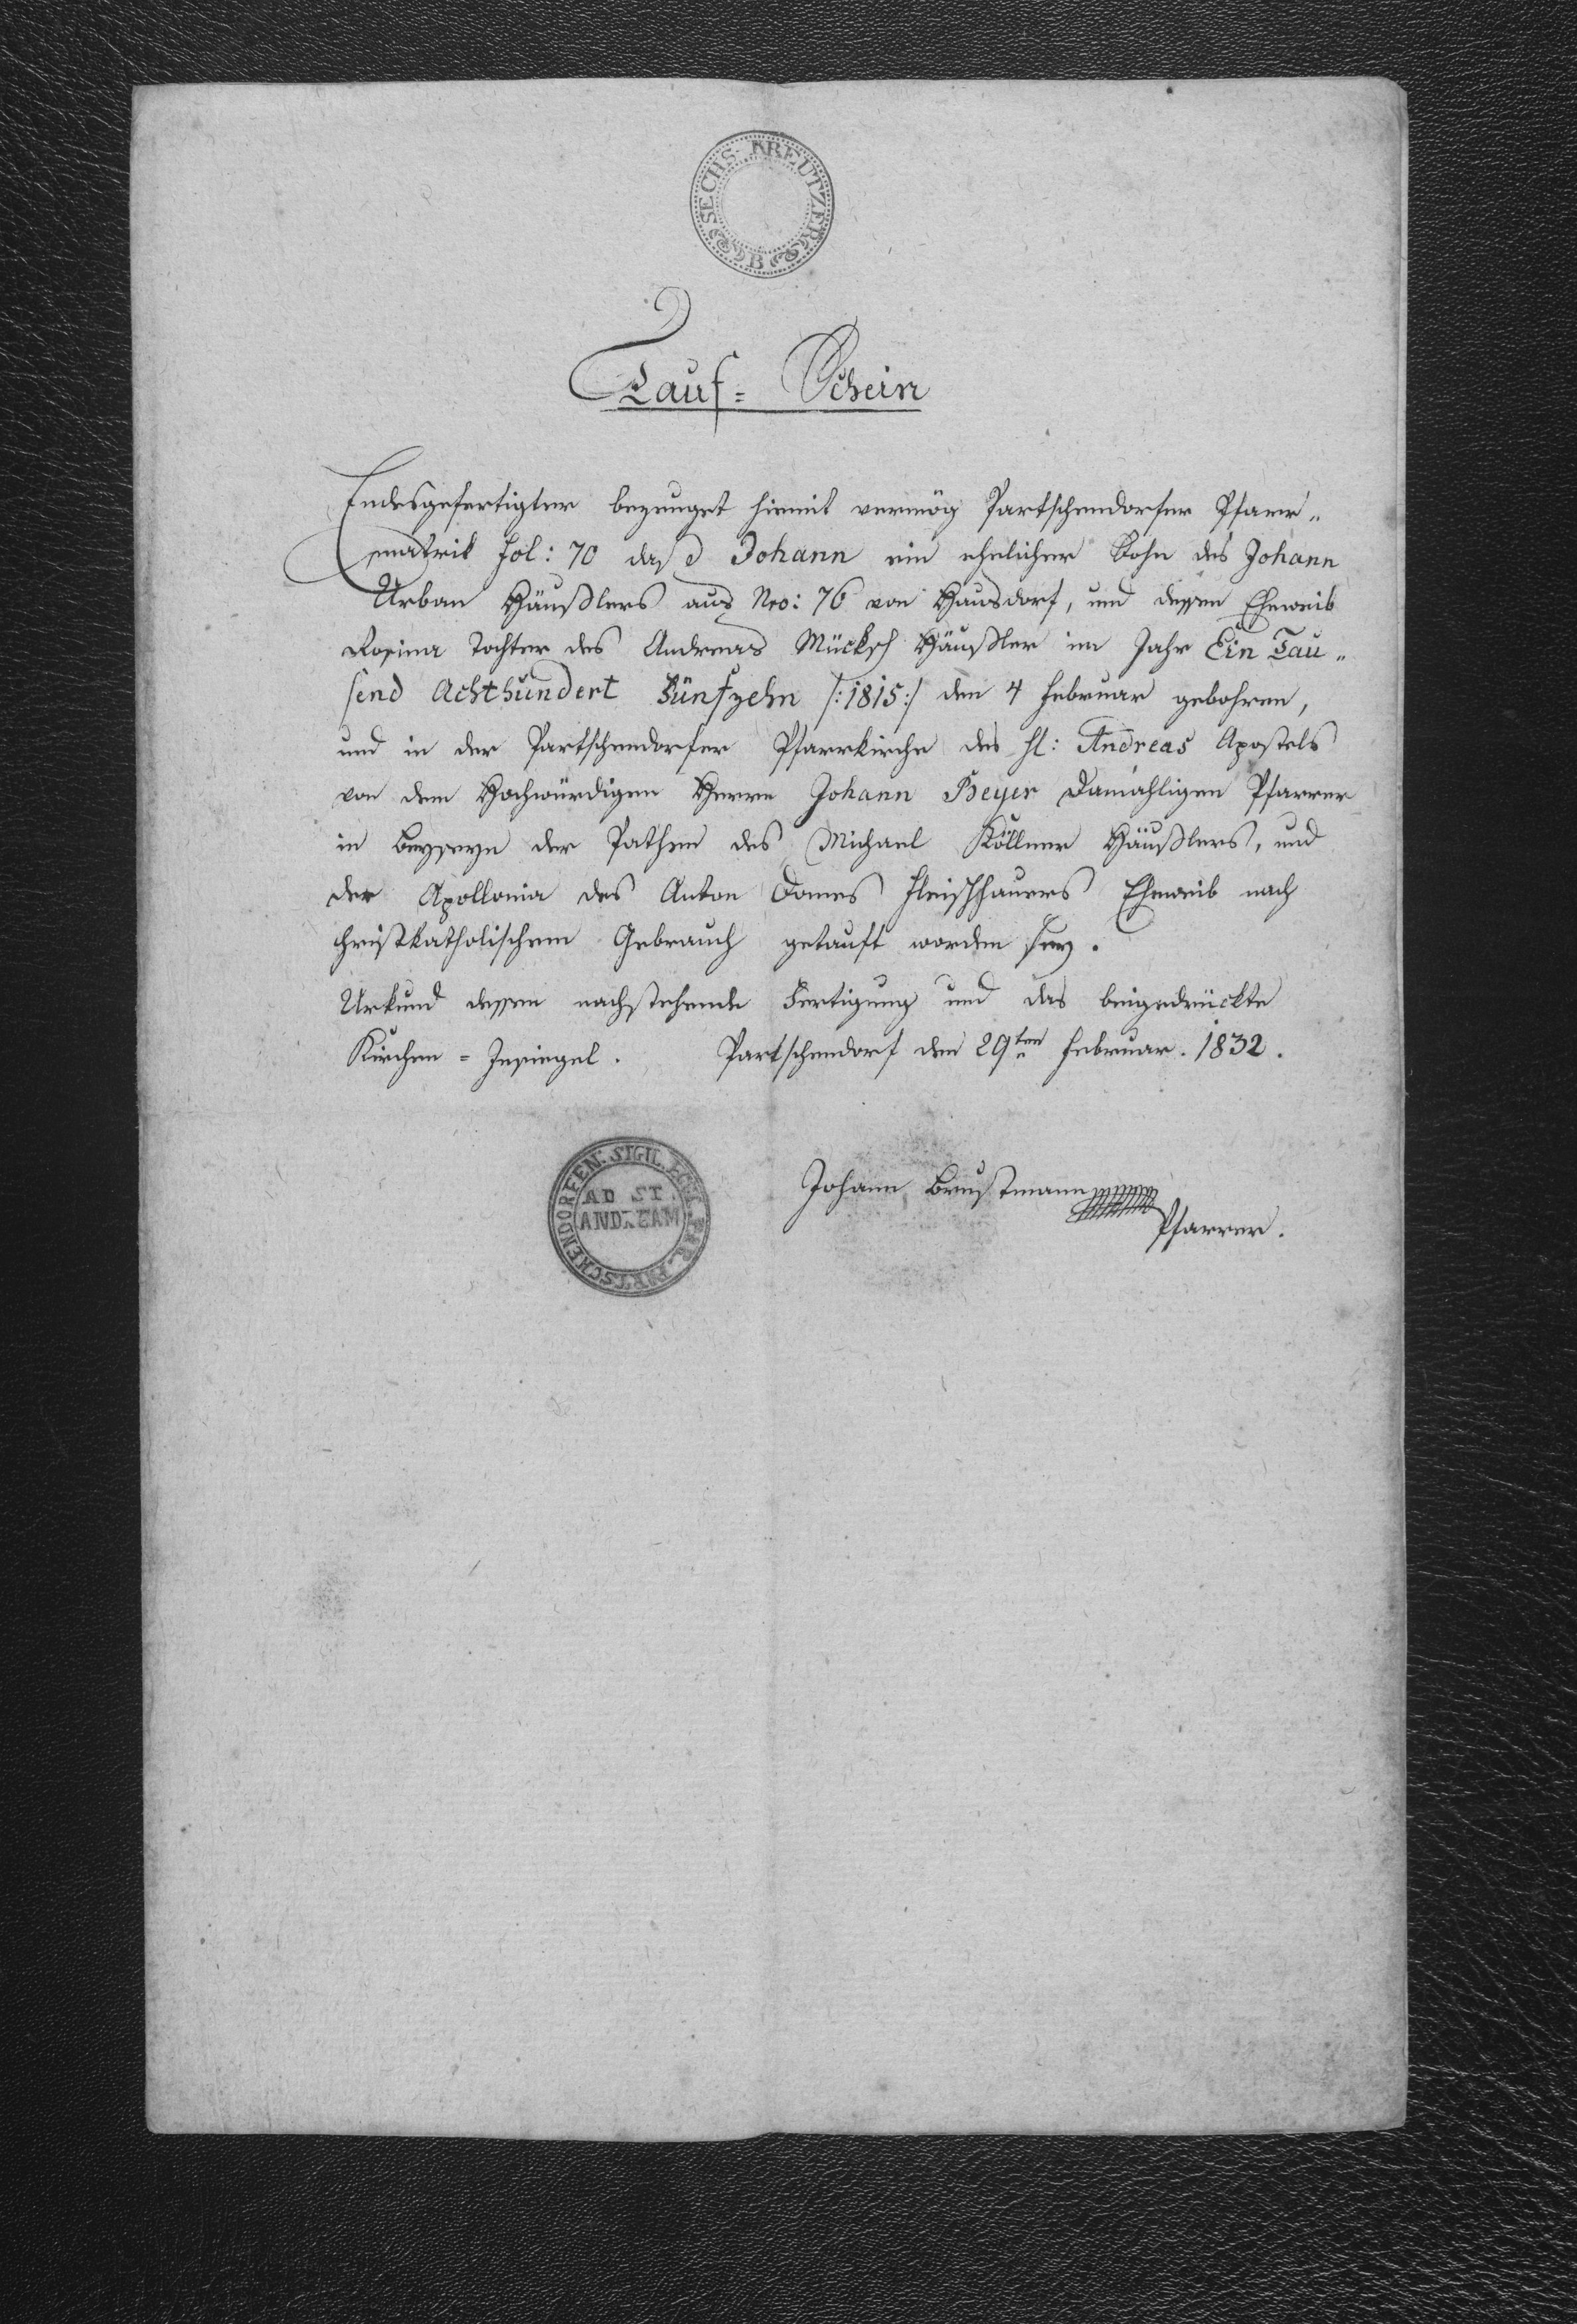 SECHS KREUTZER
B
Tauf= Schein
Endesgefertigter bezeuget hiemit vermög Partschendorfer Pfarr„
matrik fol: 70 daß Johann ein ehelicher Sohn des Johann
Urban Häußlers aus Nro: 76 von Hausdorf, und dessen Eheweib
Rosina Tochter des Andreas Mücksch Häußler im Jahr Ein Tau„
send Achthundert Fünfzehn /:1815:/ den 4 Februar gebohren,
und in der Partschendorfer Pfarrkirche des hl: Andreas Apostels
von dem Hochwürdigen Herrn Johann Beyer Damähligen Pfarrer
in Beyseyn der Pathen des Michael Köllner Häußlers, und
der Apollonia des Anton Domes Fleischhauers Eheweib nach
christkatholischem Gebrauch getauft worden sey.
Urkund dessen nachstehende Fertigung und das beigedrückte
Kirchen=Insiegel. Partschendorf den 29ten Februar. 1832.
SIGIL. ECCL. PAR. PARTSCHENDORFEN.
AD ST.
ANDREAM
Johann Brustmann
Pfarrer.